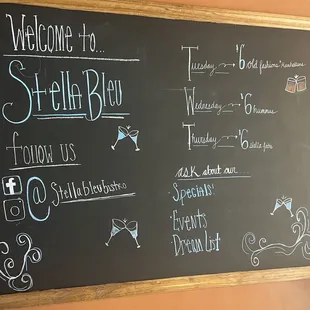 Welcome to...
Stella Bleu
follow us
@Stellableubistro
Tuesday → $6 old fashions + Manhattans
Wednesday → $6 hummus
Thursday → $6 stella fries
ask about our...
Specials!
Events
Dream List